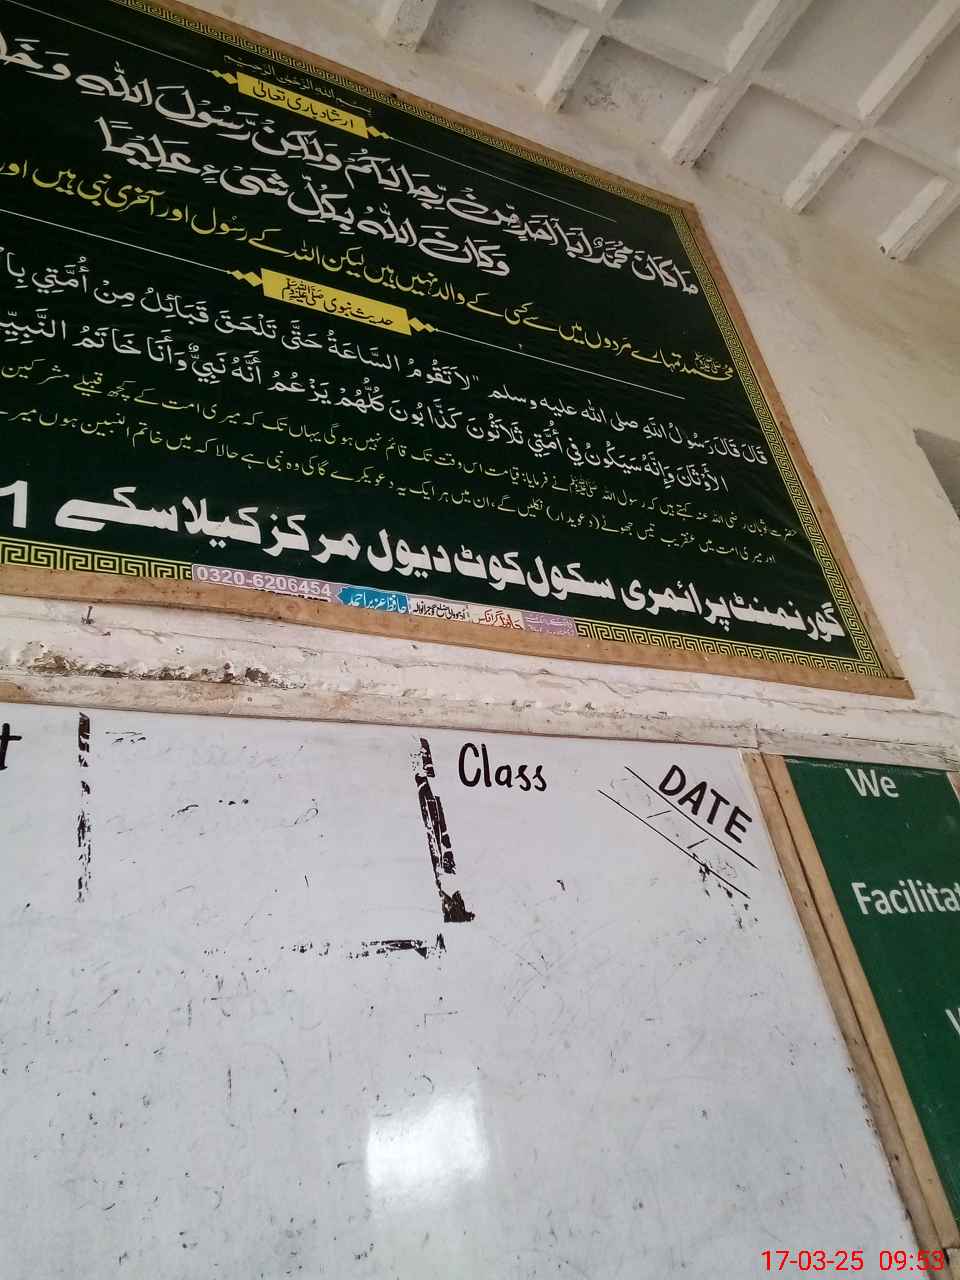 بسم الله الرحمن الرحيم
ارشاد باری تعالیٰ
مَا كَانَ مُحَمَّدٌ اَبَآ اَحَدٍ مِّنْ رِّجَالِكُمْ وَلٰكِنْ رَّسُوْلَ اللّٰهِ وَخَا
وَكَانَ اللّٰهُ بِكُلِّ شَىْءٍ عَلِيْمًا
محمد ﷺ تمہارے مَردوں میں سے کسی کے والد نہیں ہیں لیکن اللہ کے رسُول اور آخری نبی ہیں اور
حدیث نبوی ﷺ
قَالَ قَالَ رَسُولُ اللَّهِ صلى الله عليه وسلم "لاَ تَقُومُ السَّاعَةُ حَتَّى تَلْحَقَ قَبَائِلُ مِنْ أُمَّتِي بِا
الأَوْثَانَ وَإِنَّهُ سَيَكُونُ فِي أُمَّتِي ثَلاَثُونَ كَذَّابُونَ كُلُّهُمْ يَزْعُمُ أَنَّهُ نَبِيٌّ وَأَنَا خَاتَمُ النَّبِيِّ
حضرت ثوبان رضی اللہ عنہ کہتے ہیں کہ رسول اللہ ﷺ نے فرمایا: قیامت اس وقت تک قائم نہیں ہو گی یہاں تک کہ میری امت کے کچھ قبیلے مشرکین
اور میری امت میں عنقریب تیس جھوٹے (دعویدار) نکلیں گے، ان میں ہر ایک یہ دعویٰ کرے گا کہ وہ نبی ہے حالانکہ میں خاتم النبیین ہوں میرے
گورنمنٹ پرائمری سکول کوٹ دیول مرکز کیلاسکے 1
0320-6206454
حافظ عزیر احمد
حافظ گرافکس
t
Class
DATE
/ /
We
Facilitat
17-03-25 09:53